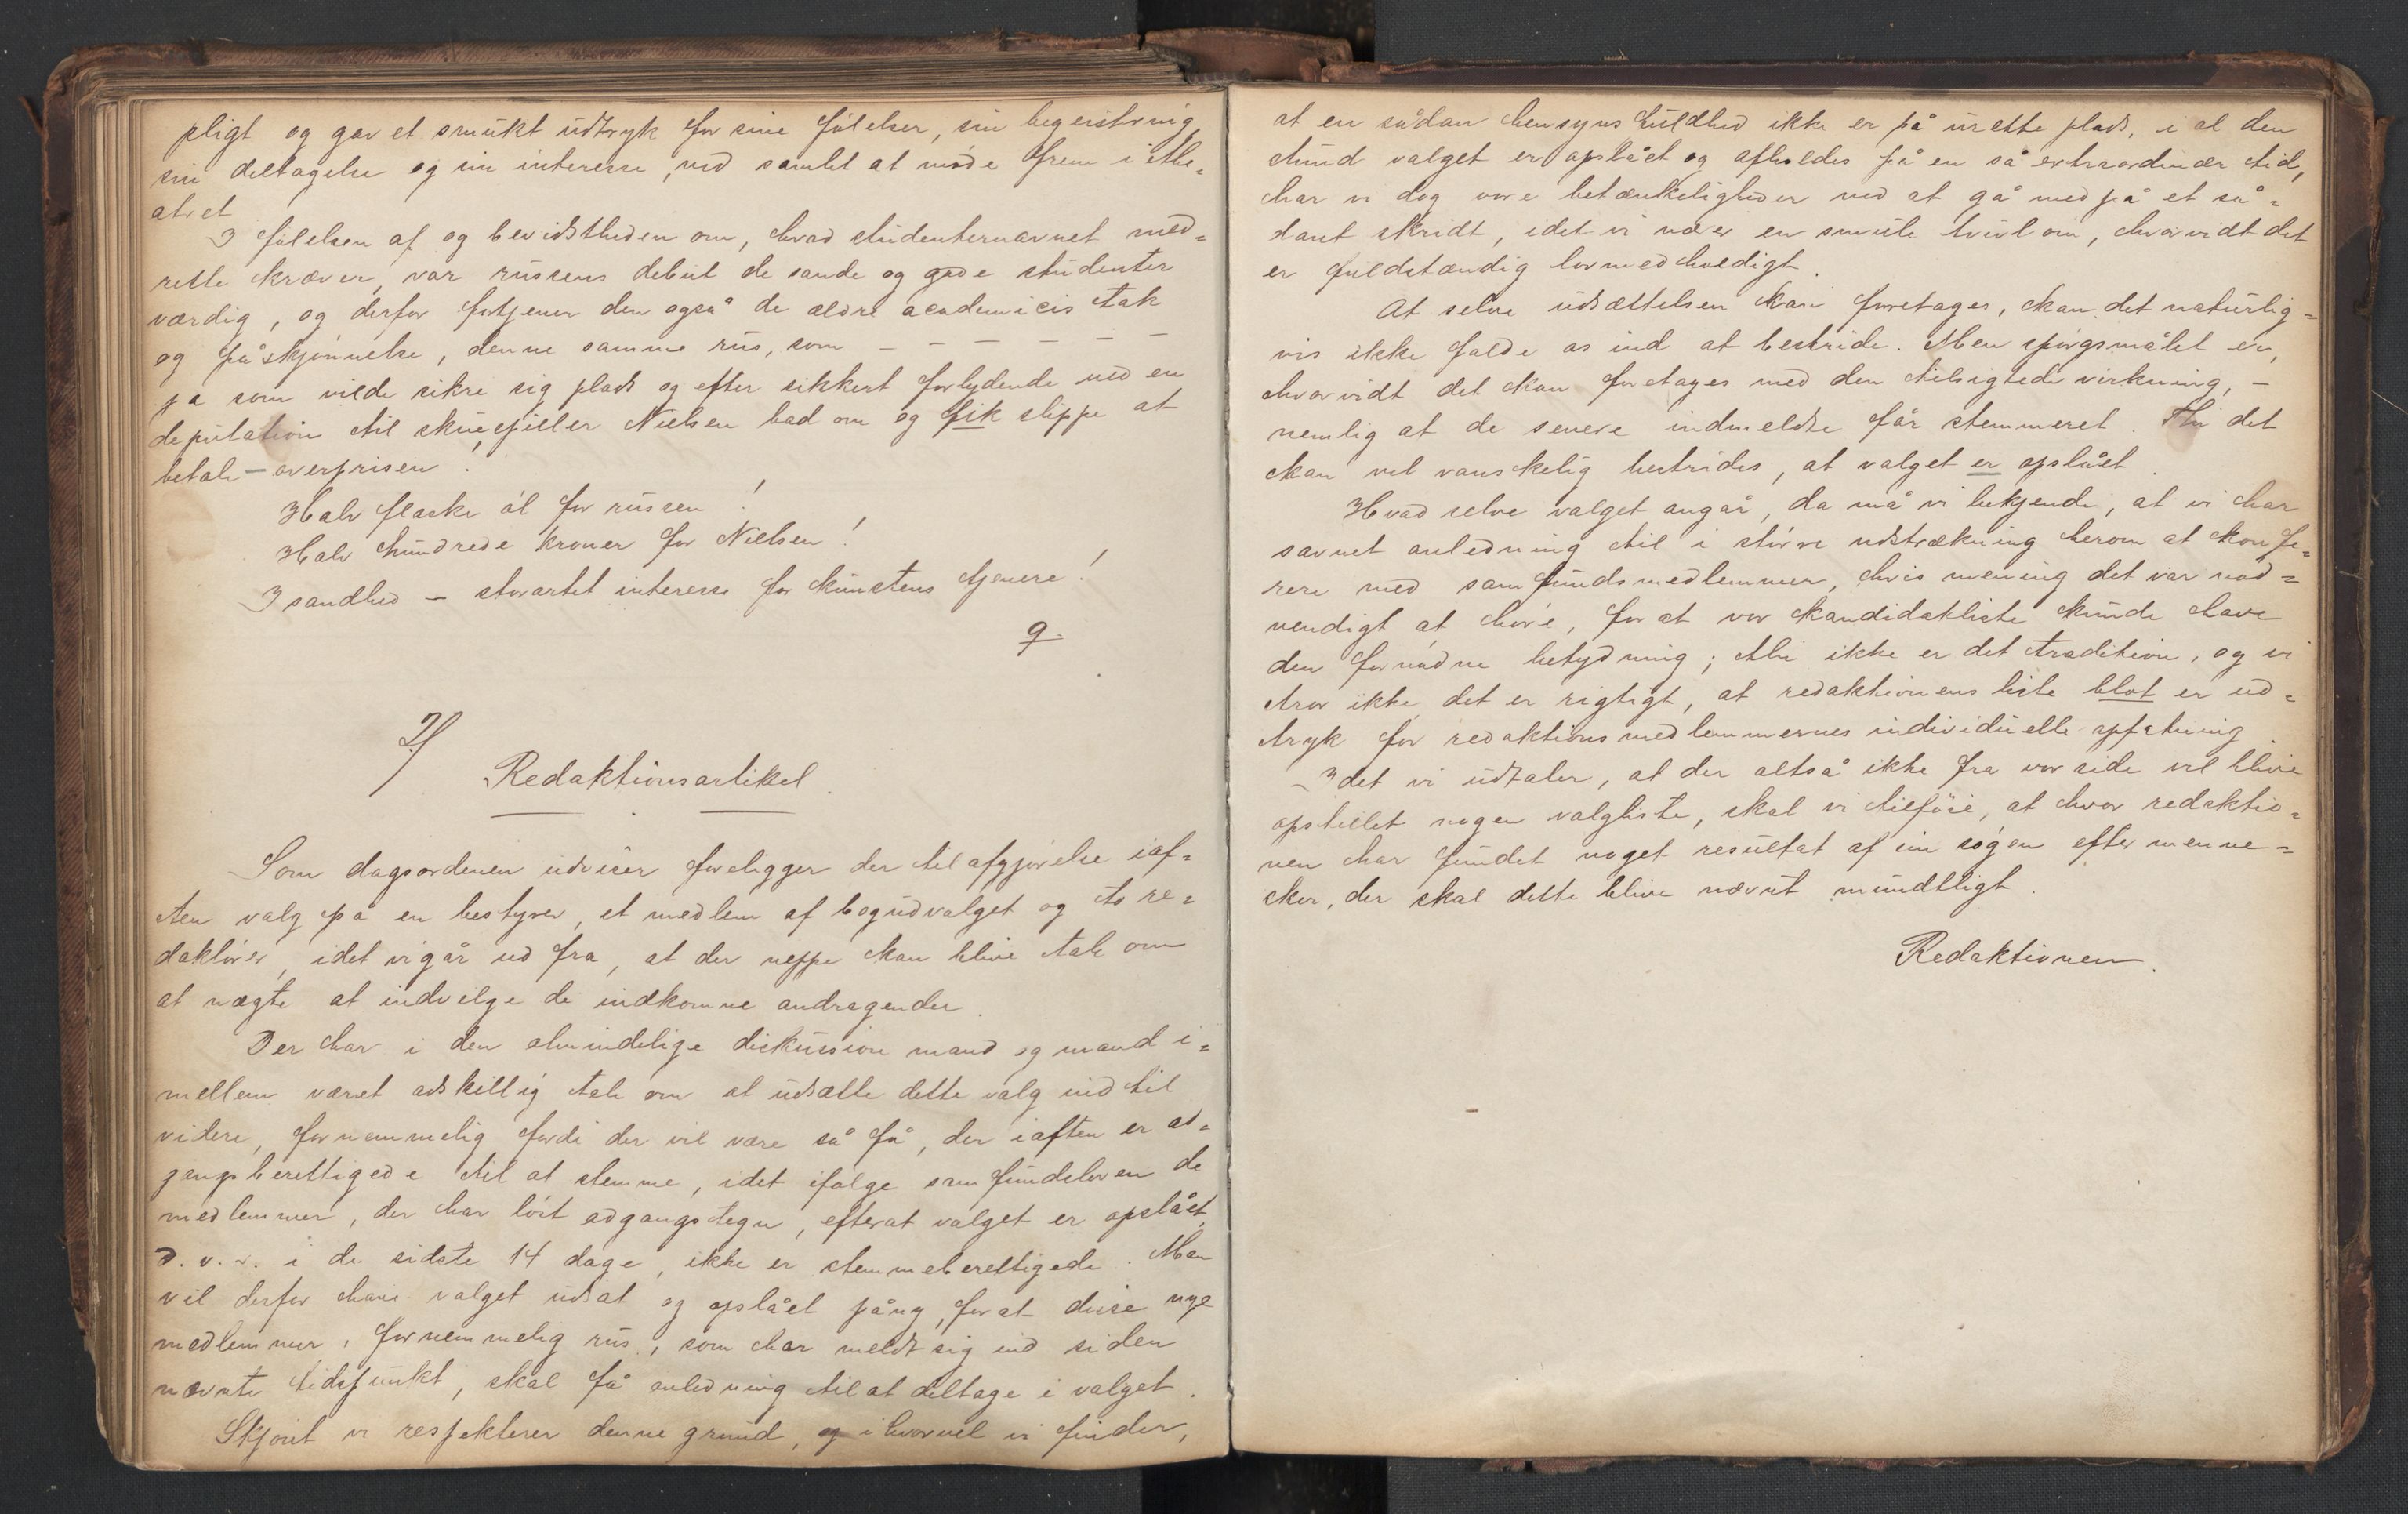 pligt og gav et smukt udtryk for sine følelser, sin begeistring,
sin deltagelse og sin interesse, ved samlet at møde frem i the-
atret
I følelsen af og bevidstheden om, hvad studenternavnet med-
rette kræver, var russens debut de sande og gode studenter
værdig, og derfor fortjener den også de ældre academicis tak
og påskjønnelse, denne samme rus, som — — — — — —
ja som vilde sikre sig plads og efter sikkert forlydende ved en
deputation til skuespiller Nielsen bad om og fik slippe at
betale — overprisen!
Halv flaske øl for russen!
Halv hundrede kroner for Nielsen!
I sandhed — storartet interesse for kunstens tjenere!
q.
2/
Redaktionsartikel.
Som dagsordenen udviser foreligger der til afgjørelse iaf-
ten valg på en bestyrer, et medlem af bogudvalget og to re-
daktører, idet vi går ud fra, at der neppe kan blive tale om
at nægte at indvilge de indkomne andragender.
Der har i den almindelige diskussion mand og mand i-
mellem været adskillig tale om at udsætte dette valg indtil
videre, fornemmelig fordi der vil være så få, der iaften er ad-
gangsberettigede til at stemme, idet ifølge samfundsloven de
medlemmer, der har løst adgangstegn, efterat valget er opslået,
d. v. s. i de sidste 14 dage, ikke er stemmeberettigede. Man
vil derfor have valget udsat og opslået påny, forat disse nye
medlemmer, fornemmelig rus, som har meldt sig ind siden
nævnte tidspunkt, skal få anledning til at deltage i valget.
Skjønt vi respekterer denne grund, og ihvorvel vi finder,
at en sådan hensynsfuldhed ikke er på urette plads, i al den
stund valget er opslået og afholdes på en så extraordinær tid,
har vi dog vore betænkeligheder ved at gå med på et så-
dant skridt, idet vi nærer en smule tvivl om, hvorvidt det
er fuldstændig lovmedholdigt.
At selve udsættelsen kan foretages, kan det naturlig-
vis ikke falde os ind at bestride. Men spørgsmålet er,
hvorvidt det kan foretages med den tilsigtede virkning, —
nemlig at de senere indmeldte får stemmeret. Thi det
kan vel vanskelig bestrides, at valget er opslået.
Hvad selve valget angår, da må vi bekjende, at vi har
savnet anledning til i større udstrækning herom at konfe-
rere med samfundsmedlemmer, hvis mening det var nød-
vendigt at høre, for at vor kandidatliste kunde have
den fornødne betydning; thi ikke er det tradition, og vi
tror ikke det er rigtigt, at redaktionens liste blot er ud-
tryk for redaktionsmedlemmernes individuelle opfatning.
Idet vi udtaler, at der altså ikke fra vor side vil blive
opstillet nogen valgliste, skal vi tilføie, at hvor redaktio-
nen har fundet noget resultat af sin søgen efter menne-
sker, der skal dette blive nævnt mundtligt.
Redaktionen.